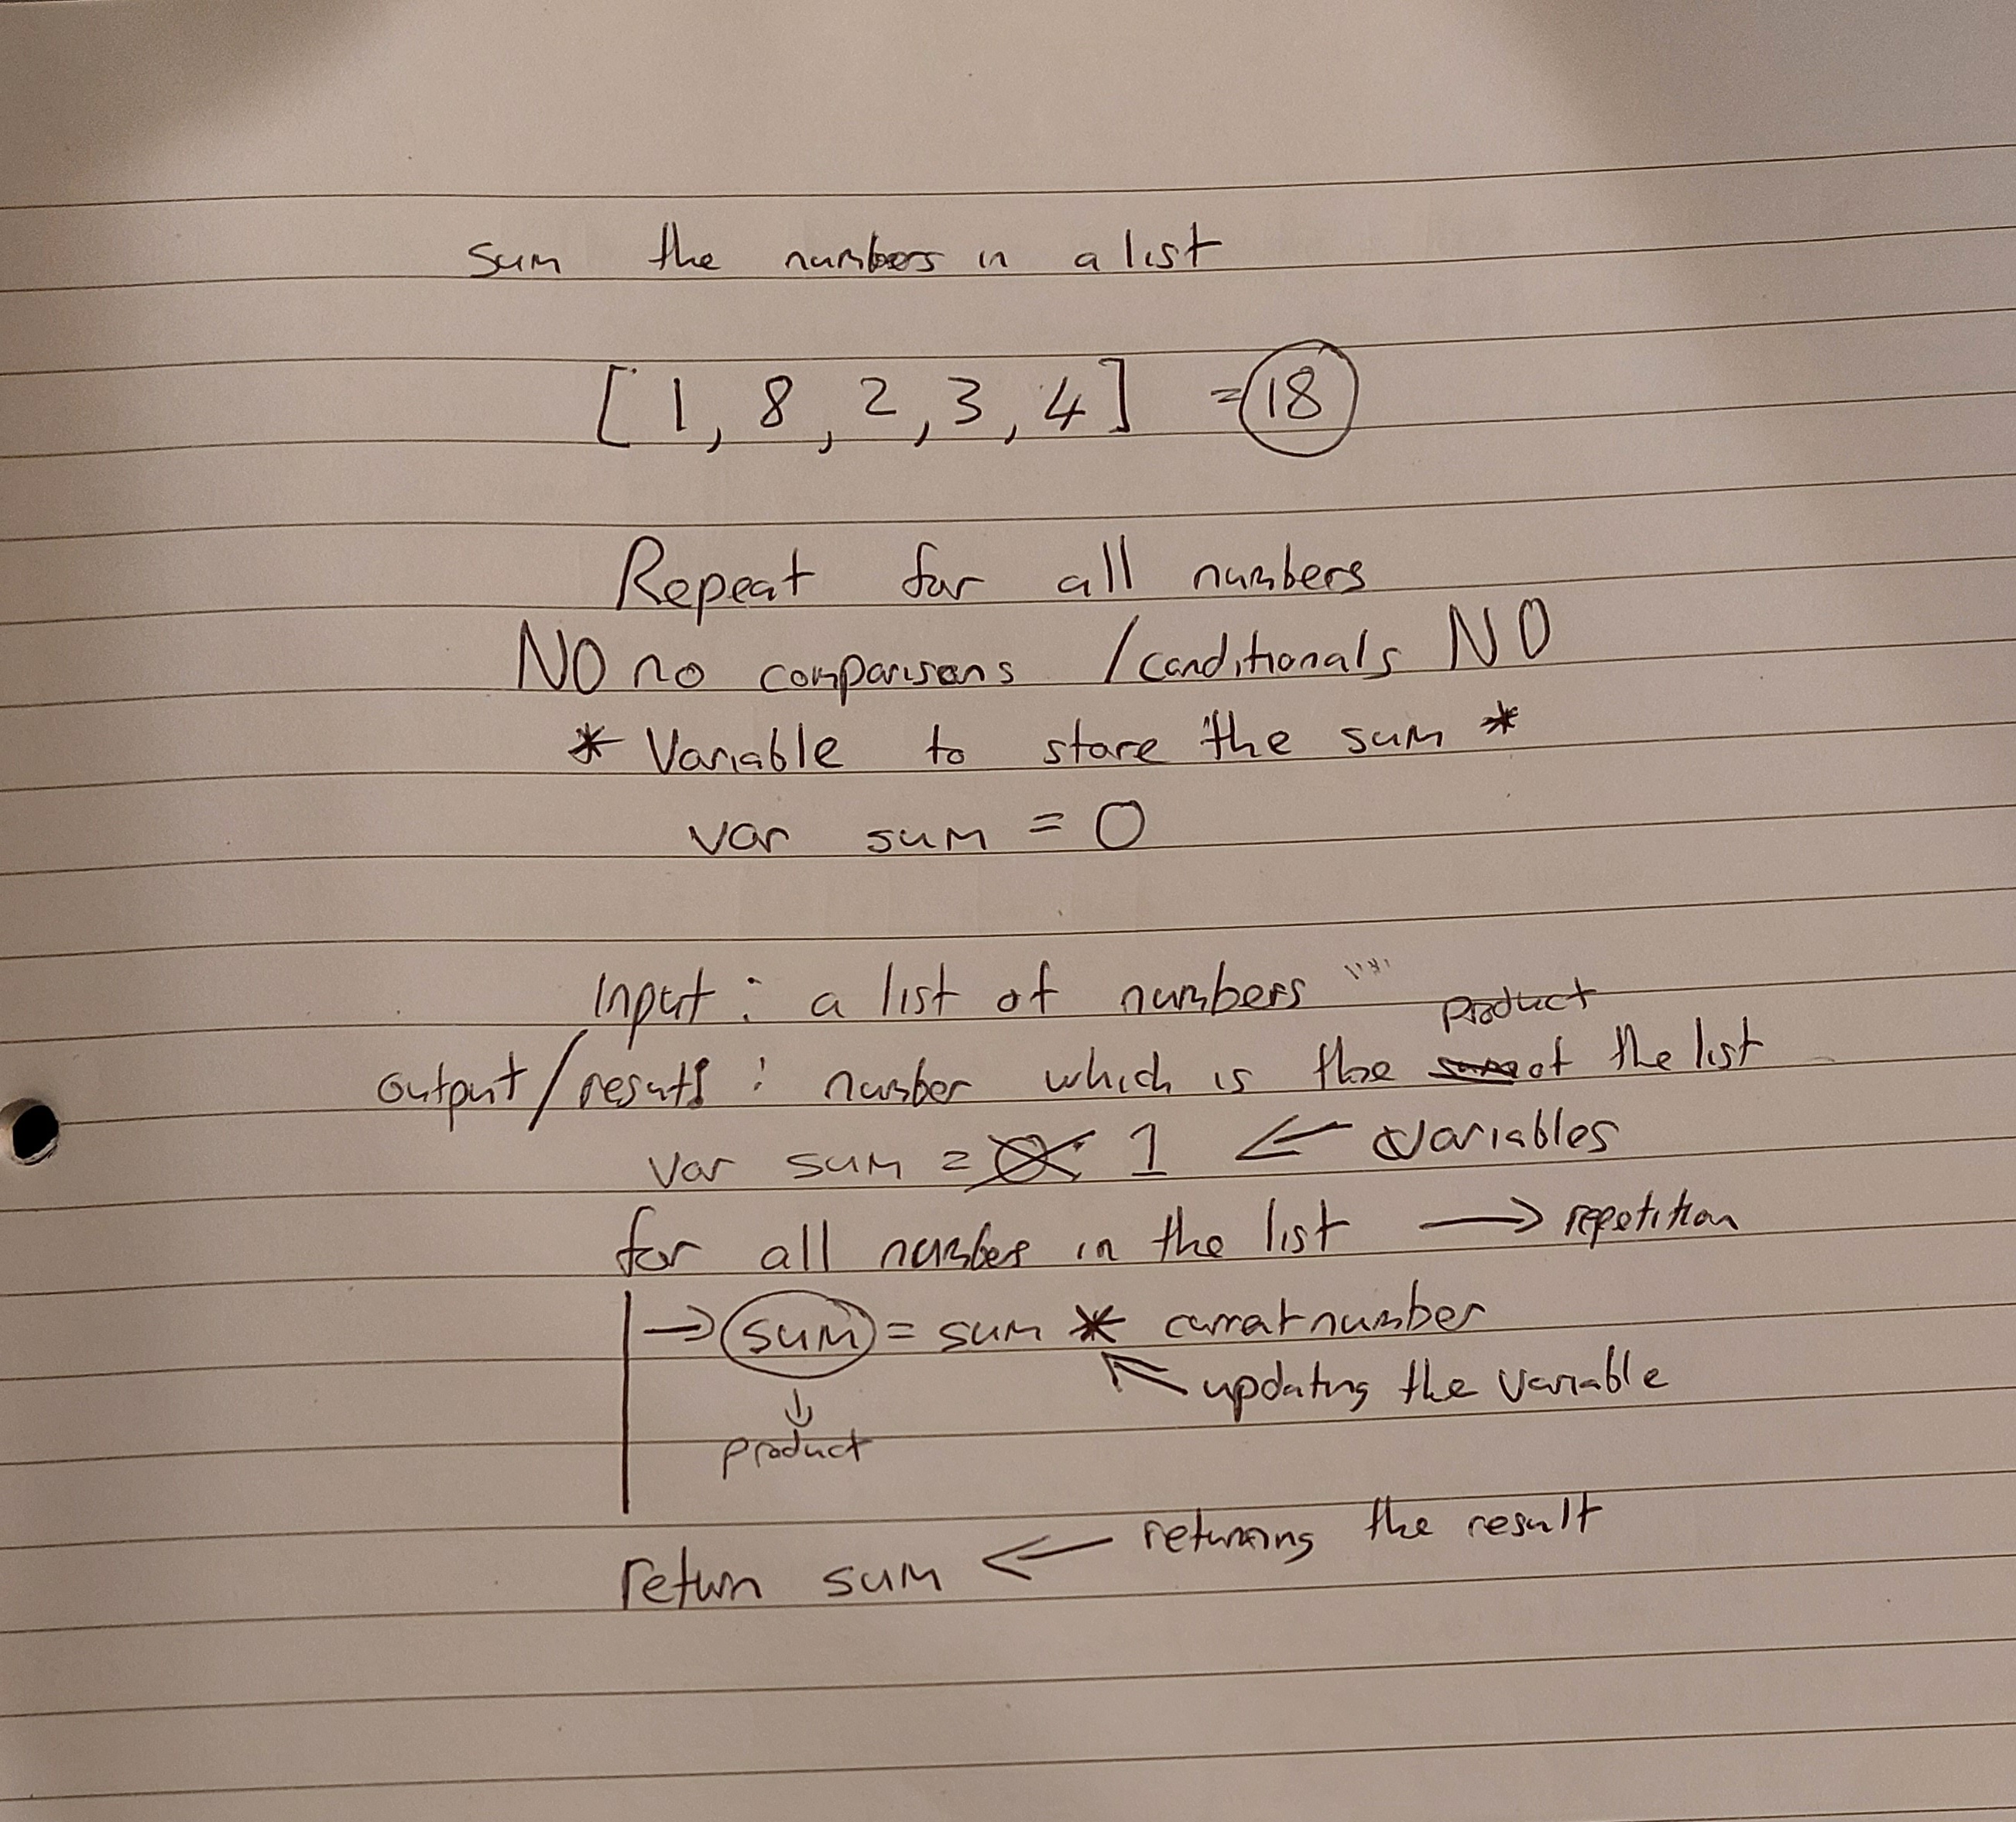 sum the numbers in a list
[1, 8, 2, 3, 4] = 18
Repeat for all numbers
NO no comparisons / conditionals NO
* Variable to store the sum *
var sum = 0
Input : a list of numbers
product
output/result : number which is the sum of the list
var sum = 0 1 ← Variables
for all number in the list → repetition
→ sum = sum * currentnumber
updating the variable
↓
product
return sum ← returning the result